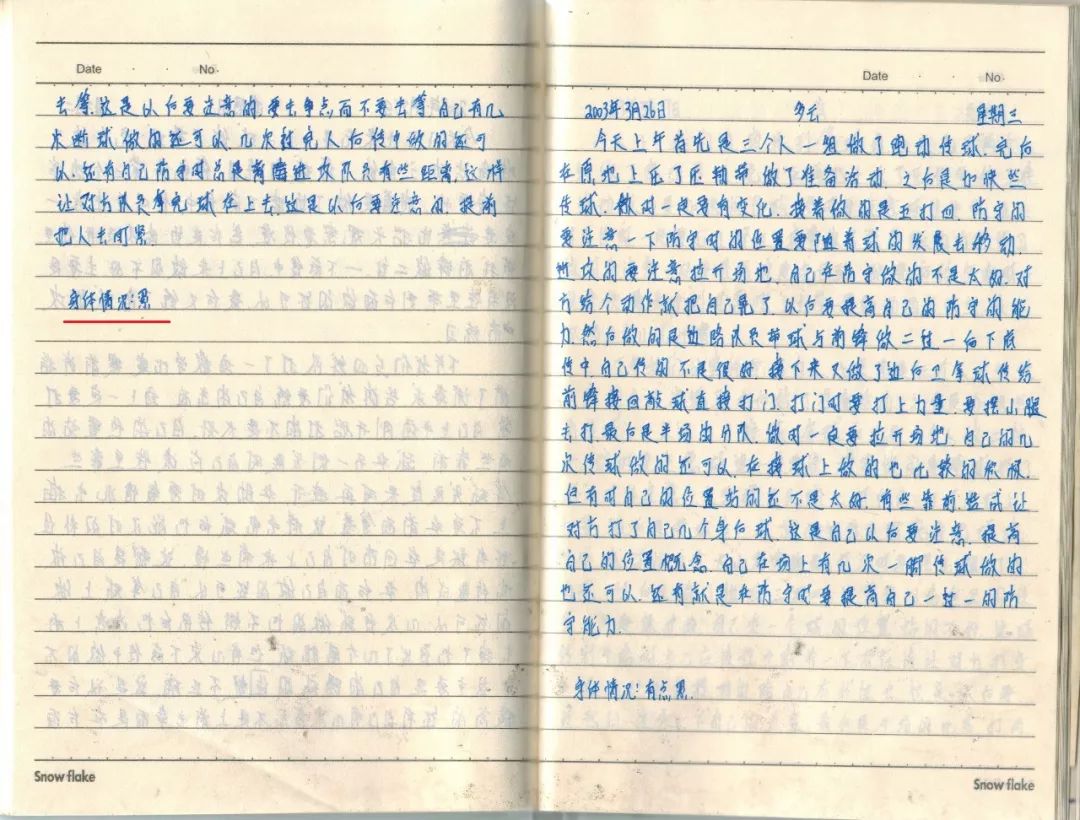 Date No.
去等.这是以后要注意的.要去争点而不要去等.自己有几
次断球做的还可以.几次过完人后传中做的还可
以.还有自己防守时总是离进攻队员有些距离.这样
让对方队员拿完球在上去.这是以后要注意的.提前
把人去盯紧.
身体情况:累
Snowflake
Date No.
2003年3月26日 多云 星期三
今天上午首先是三个人一组做了跑动传球.完后
在原地上压了压韧带.做了准备活动.之后是加快些
传球.做时一定要有变化.接着做的是五打四.防守的
要注意一下防守时的位置要随着球的发展去移动.
进攻的要注意拉开场地.自己在防守做的不是太好.对
方给个动作就把自己晃了.以后要提高自己的防守的能
力.然后做的是边路队员带球与前锋做二过一后下底
传中.自己传的不是很好.接下来又做了边后卫拿球传给
前锋接回敲球直接打门.打门时要打上力量.要摆小腿
去打.最后是半场的分队.做时一定要拉开场地.自己的几
次传球做的还可以.在接球上做的也比较的积极.
但有时自己的位置站的还不是太好.有些靠前.造成让
对方打了自己几个身后球.这是自己以后要注意.提高
自己的位置概念.自己在场上有几次一脚传球做的
也还可以.还有就是在防守时要提高自己一过一的防
守能力.
身体情况:有点累.
Snowflake